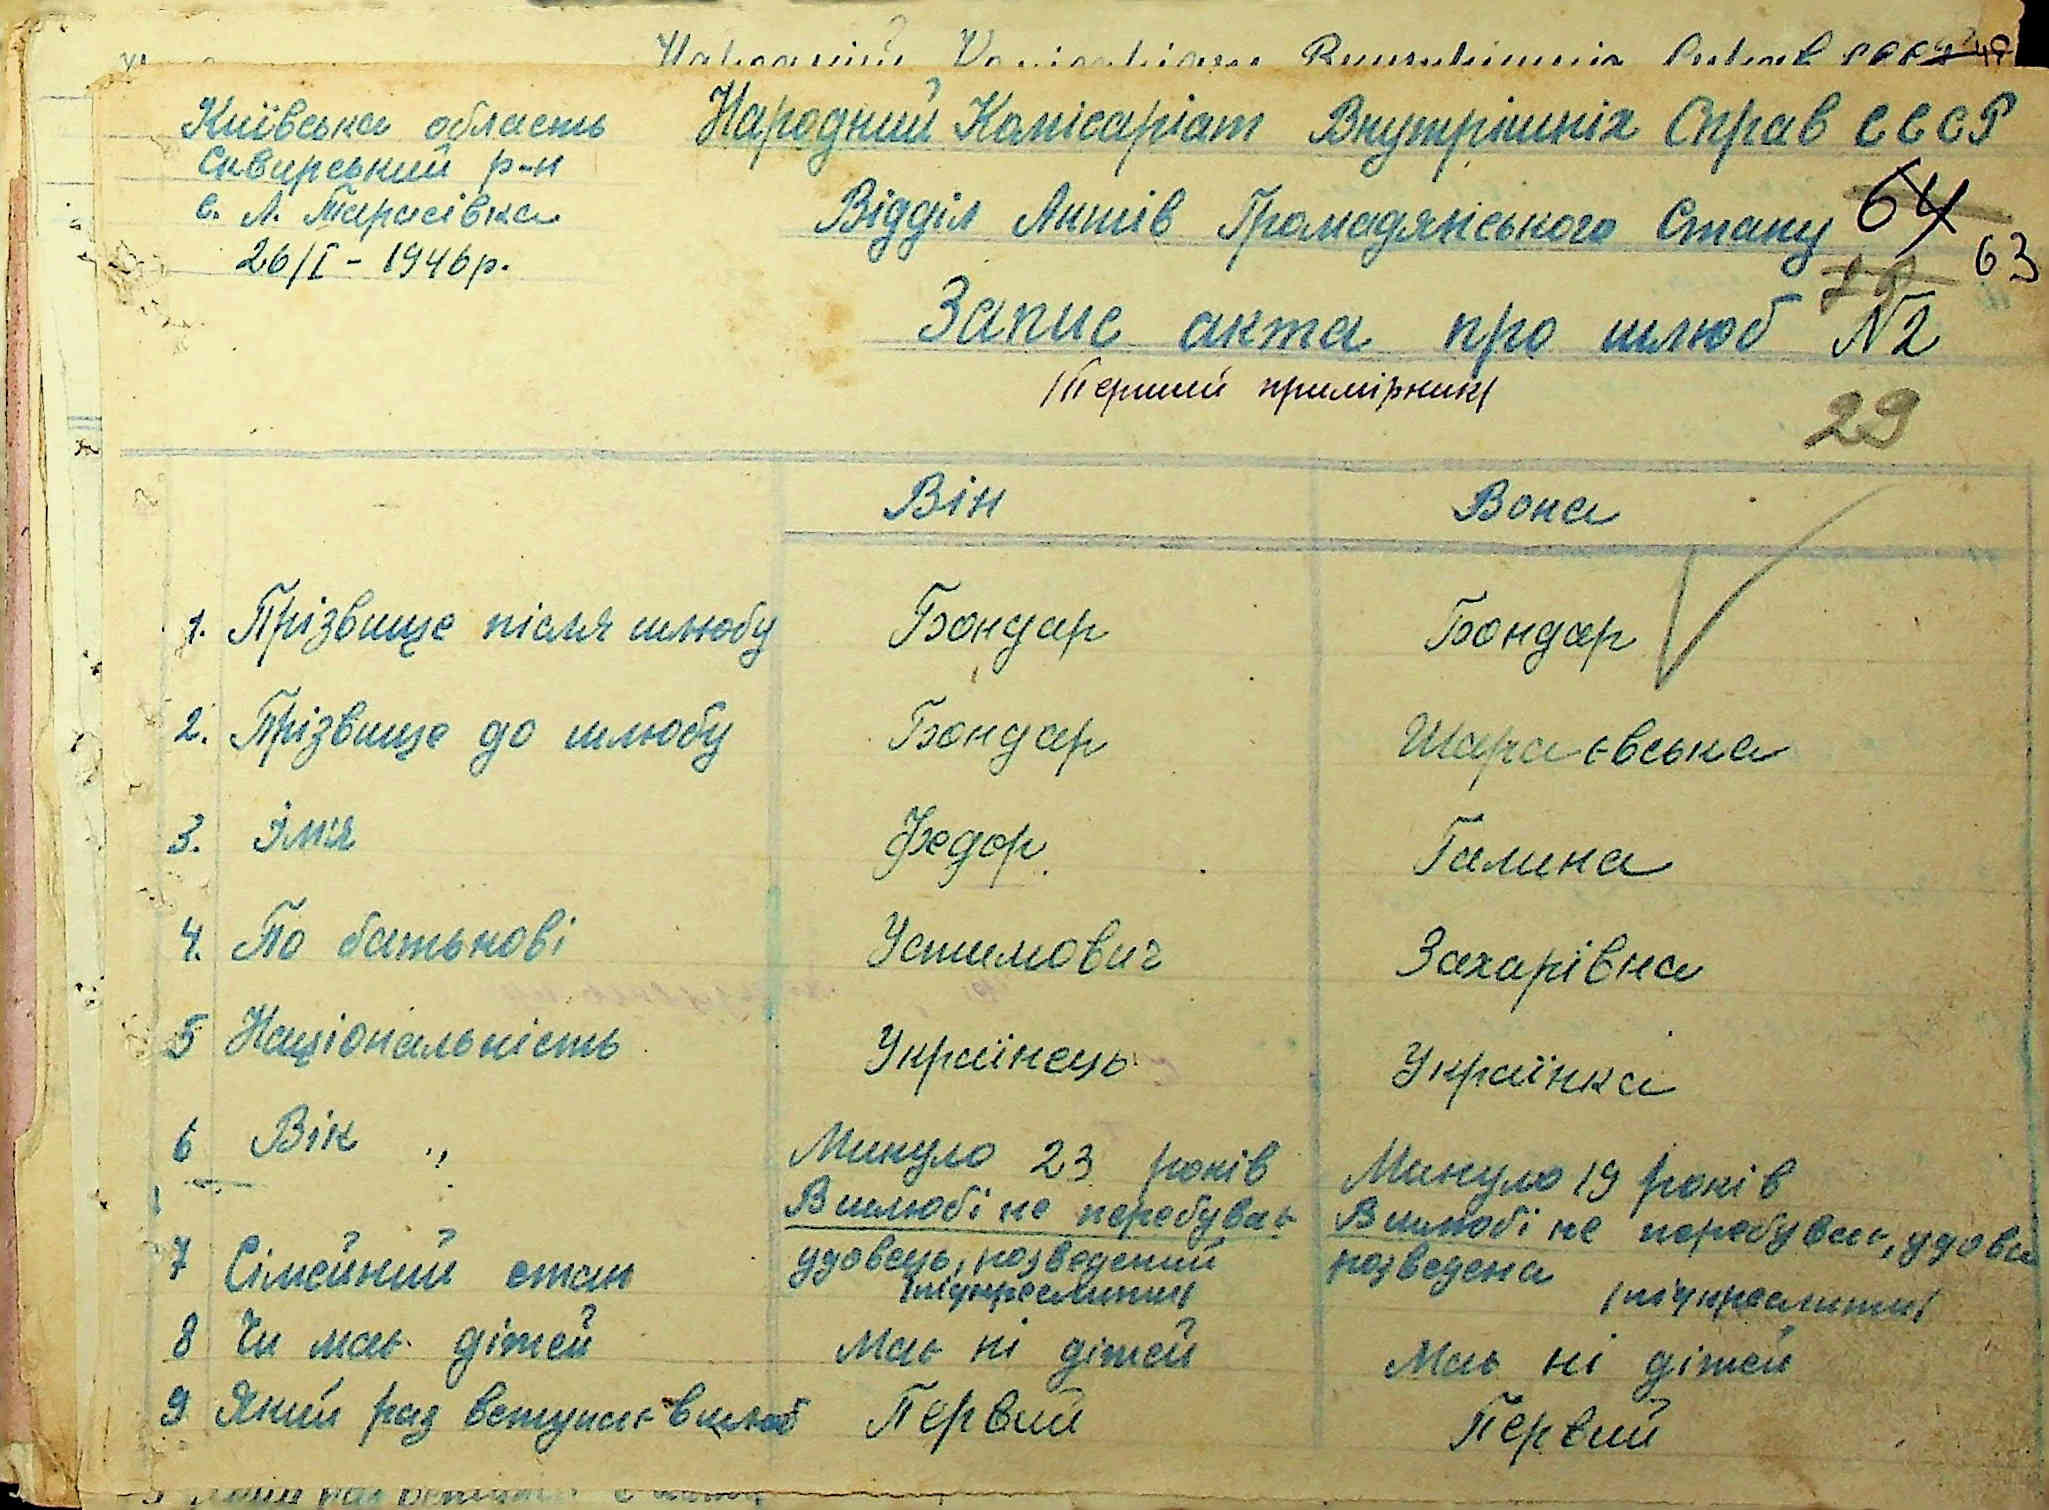 Київська область
Сквирський р-н
с. Л. Тарасівка
26/I - 1946р.
Народний Комісаріат Внутрішніх Справ СССР
Відділ Актів Громадянського Стану
64
63
Запис акта про шлюб N2
/Перший примірник/
29
Він Вона
1. Прізвище після шлюбу Бондар Бондар
2. Прізвище до шлюбу Бондар Шараєвська
3. Імя Федор Галина
4. По батькові Устимович Захарівна
5 Національність Українець Українка
6 Вік Минуло 23 років Минуло 19 років
7 Сімейний стан В шлюбі не перебуває удовець, розведений /підкреслити/ В шлюбі не перебуває, удова розведена /підкреслити/
8 Чи має дітей Має ні дітей Має ні дітей
9 Який раз вступає в шлюб Первий Первий